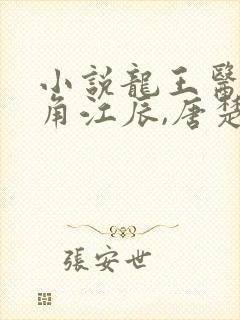 小說龍王醫
角江辰,唐楚
張安世